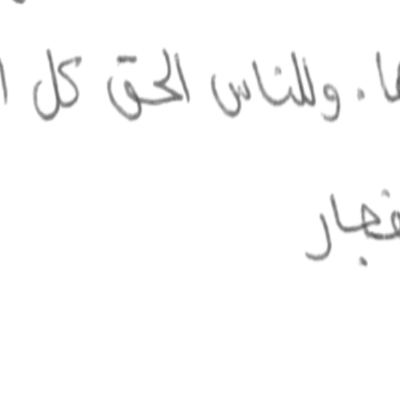 ها. وللناس الحق كل ا
فجار